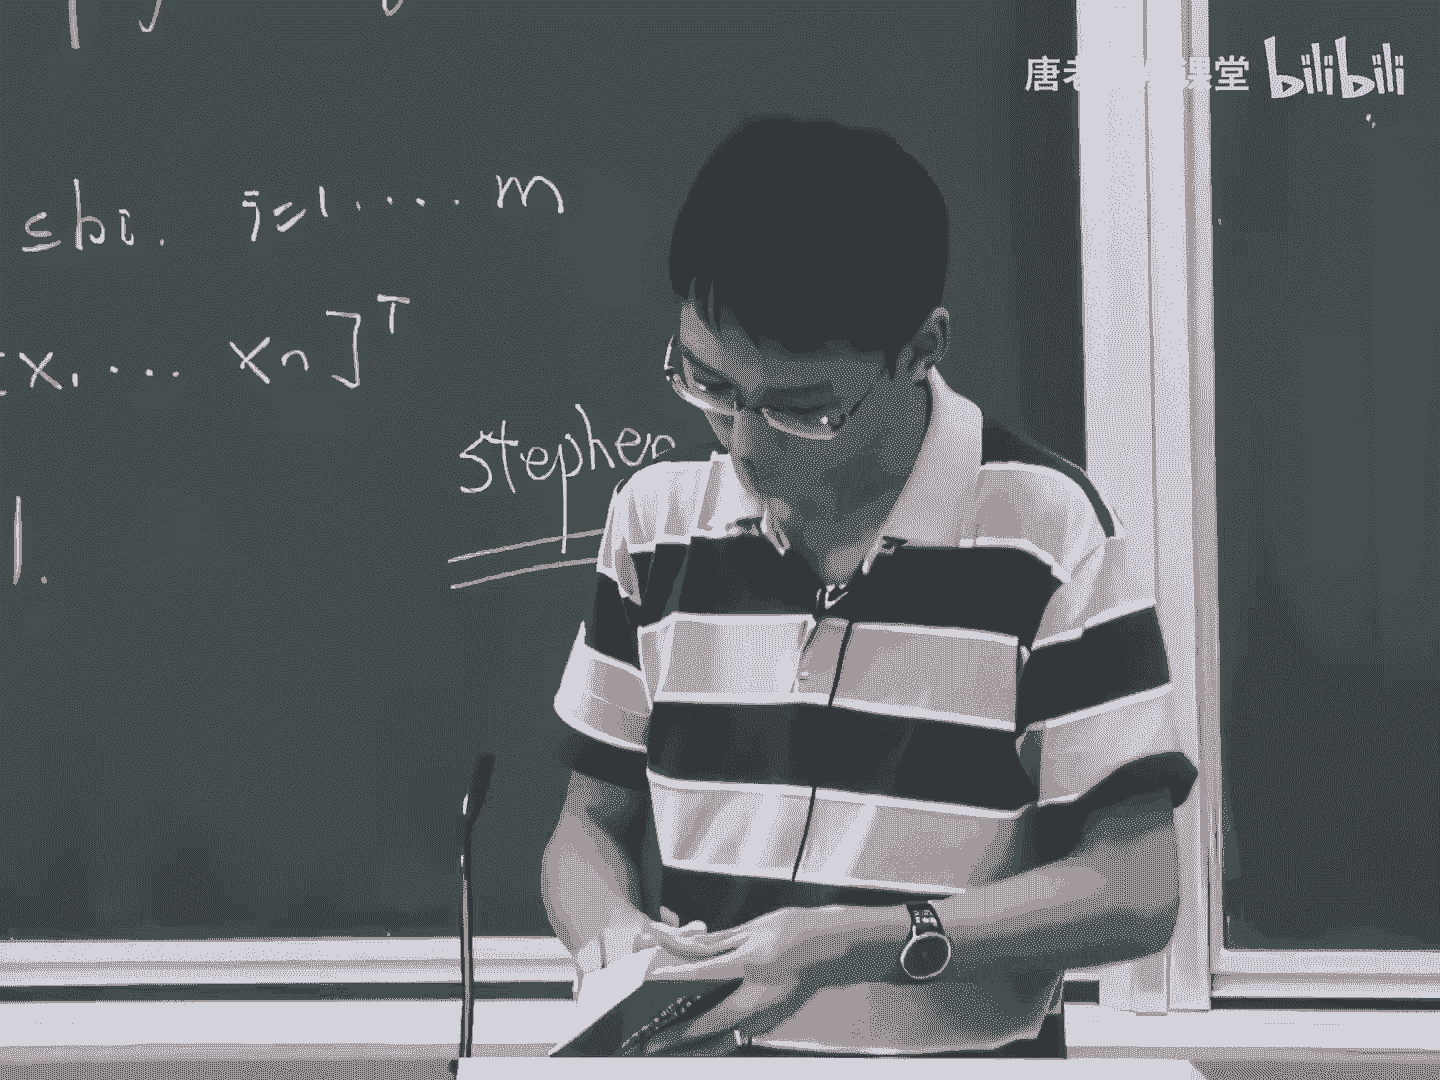 唐老 课堂 bilibili
≤bi. i=1.....m
x1 ... xn]^T
Stephen
1.